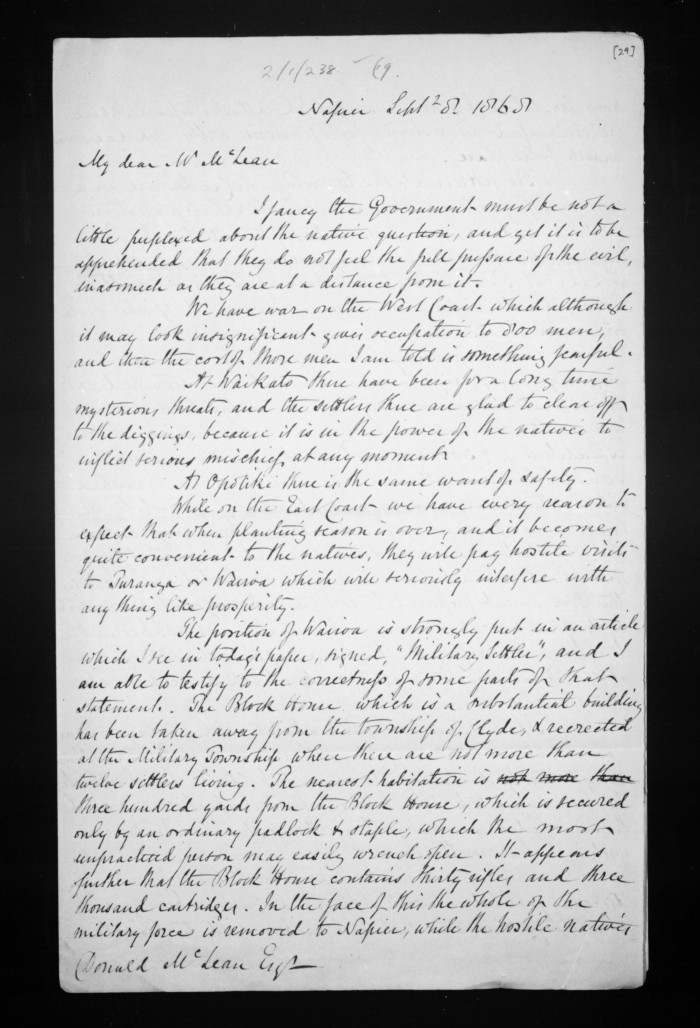 [29]
2/1/238. 69.
Napier Septr 8. 1868
My dear Mr McLean
I fancy the Government must be not a
little perplexed about the native question, and yet it is to be
apprehended that they do not feel the full pressure of the evil,
inasmuch as they are at a distance from it.
We have war on the West Coast which although
it may look insignificant gives occupation to 800 men,
and then the cost of those men I am told is something fearful.
At Waikato there have been for a long time
mysterious threats, and the settlers there are glad to clear off
to the diggings, because it is in the power of the natives to
inflict serious mischief at any moment
At Opotiki there is the same want of safety.
While on the East Coast we have every reason to
expect that when planting season is over, and it becomes
quite convenient to the natives, they will pay hostile visits
to Turanga or Wairoa which will seriously interfere with
any thing like prosperity.
The position of Wairoa is strongly put in an article
which I see in today's paper, signed, "Military Settler", and I
am able to testify to the correctness of some parts of that
statement. The Block House which is a substantial building
has been taken away from the township of Clyde, & recreted
at the Military Township when there are not more than
twelve settlers living. The nearest habitation is not more than
three hundred yards from the Block House, which is secured
only by an ordinary padlock & staple, which the most
unpracticed person may easily wrench open. It appears
further that the Block House contains thirty rifles and three
thousand cartridges. In the face of this the whole of the
military force is removed to Napier, while the hostile natives
Donald McLean Esqr